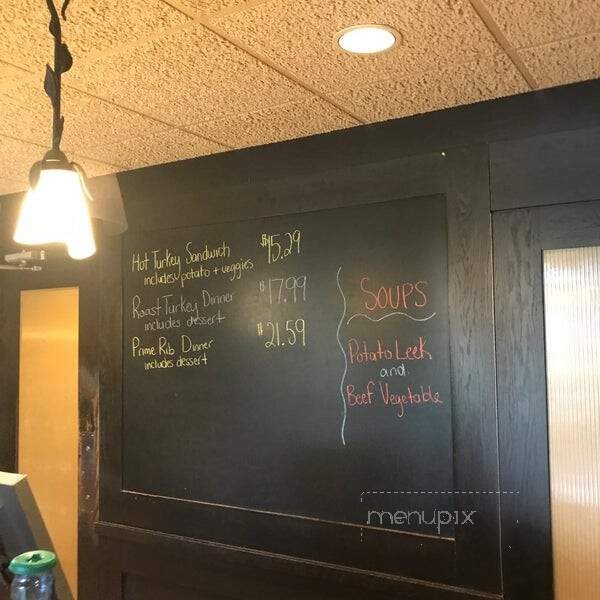 Hot Turkey Sandwich $15.29
includes potato + veggies
Roast Turkey Dinner $17.99
includes dessert
Prime Rib Dinner $21.59
includes dessert
SOUPS
Potato Leek
and
Beef Vegetable
menupix